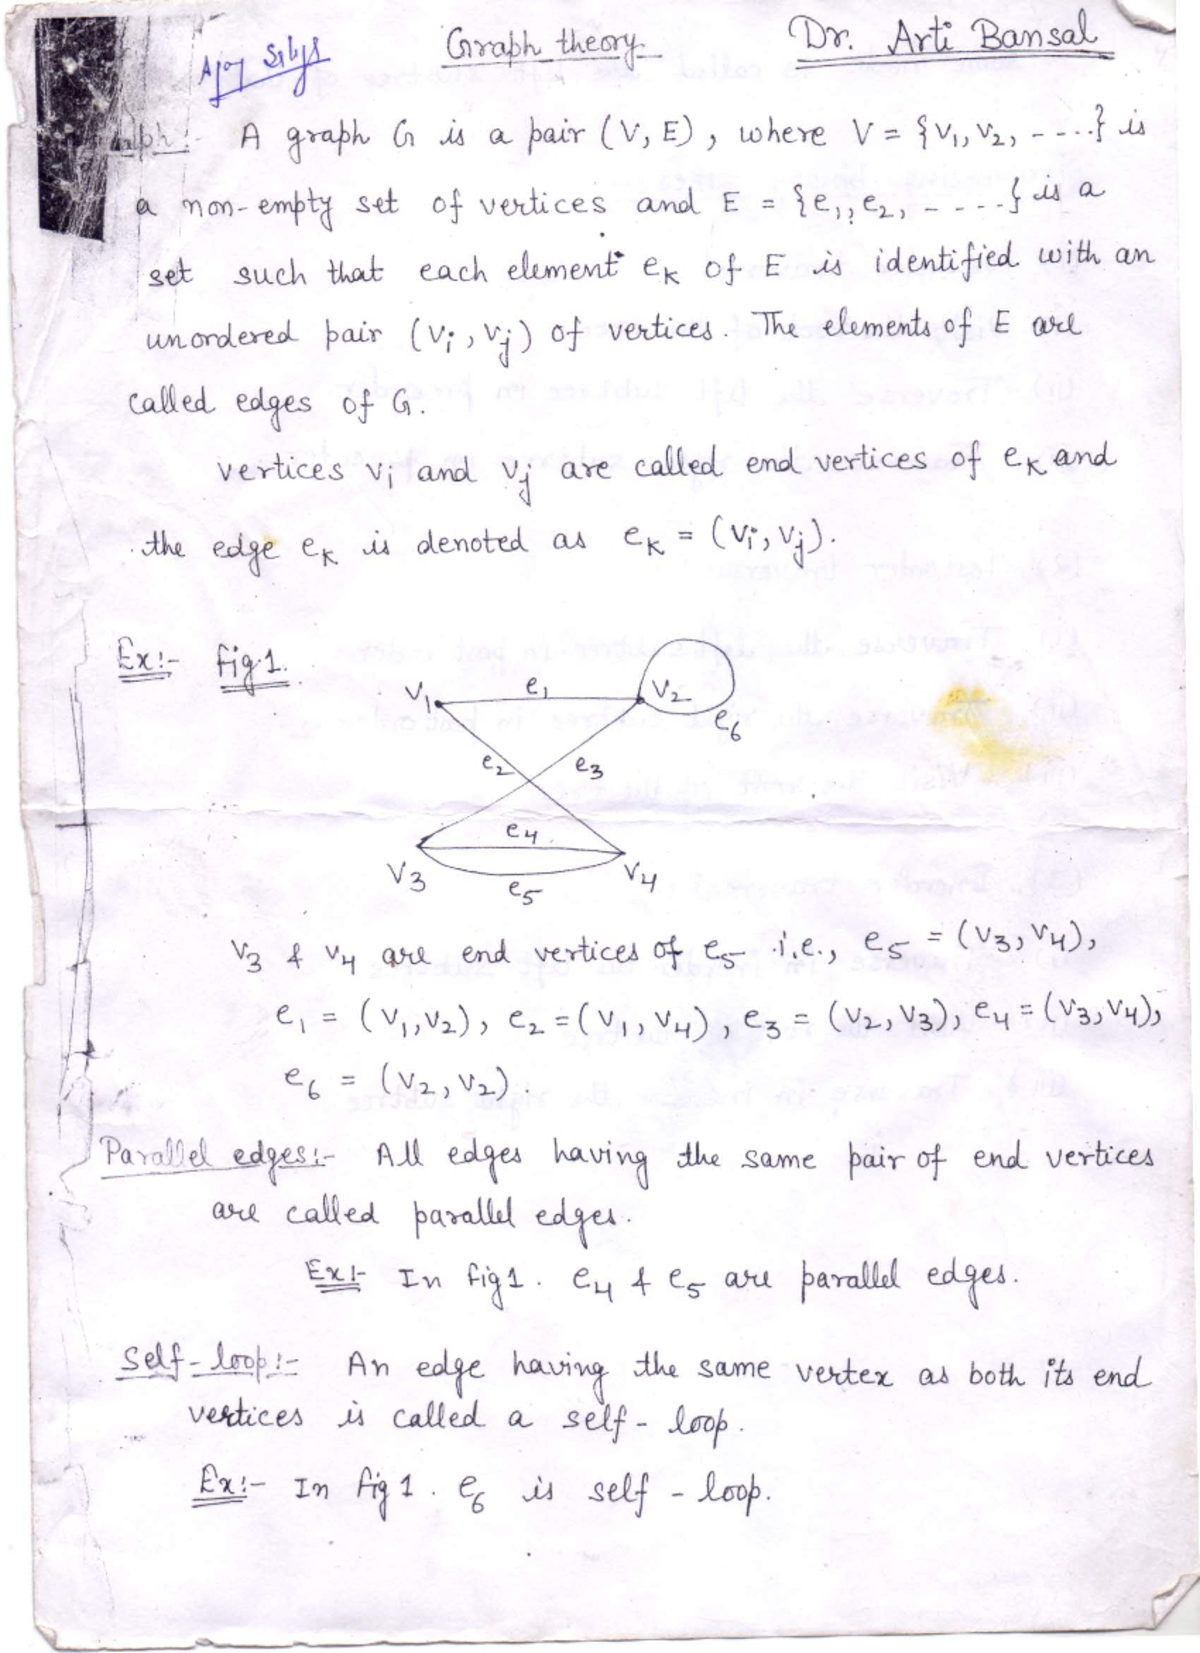 Graph theory
Dr. Arti Bansal
A graph G is a pair (V, E), where V = {v₁, v₂, - - ...} is
a non-empty set of vertices and E = {e₁, e₂, - - - -} is a
set such that each element eₖ of E is identified with an
unordered pair (vᵢ, vⱼ) of vertices. The elements of E are
called edges of G.
vertices vᵢ and vⱼ are called end vertices of eₖ and
the edge eₖ is denoted as eₖ = (vᵢ, vⱼ).
Ex:- fig.1.
v₁ e₁ v₂
e₆
e₂ e₃
e₄
v₃ v₄
e₅
v₃ & v₄ are end vertices of e₅ i.e., e₅ = (v₃, v₄),
e₁ = (v₁, v₂), e₂ = (v₁, v₄), e₃ = (v₂, v₃), e₄ = (v₃, v₄),
e₆ = (v₂, v₂)
Parallel edges:- All edges having the same pair of end vertices
are called parallel edges.
Ex:- In fig 1. e₄ & e₅ are parallel edges.
Self-loop:- An edge having the same vertex as both its end
vertices is called a self-loop.
Ex:- In fig 1. e₆ is self-loop.